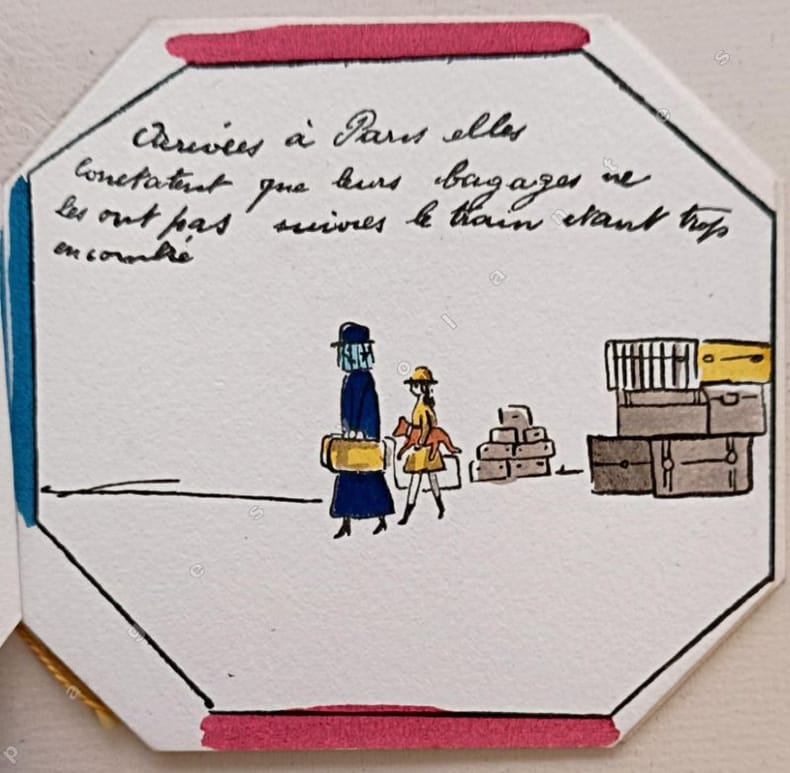 Arrivées à Paris elles
constatent que leurs bagages ne
les ont pas suivies le train étant trop
encombré